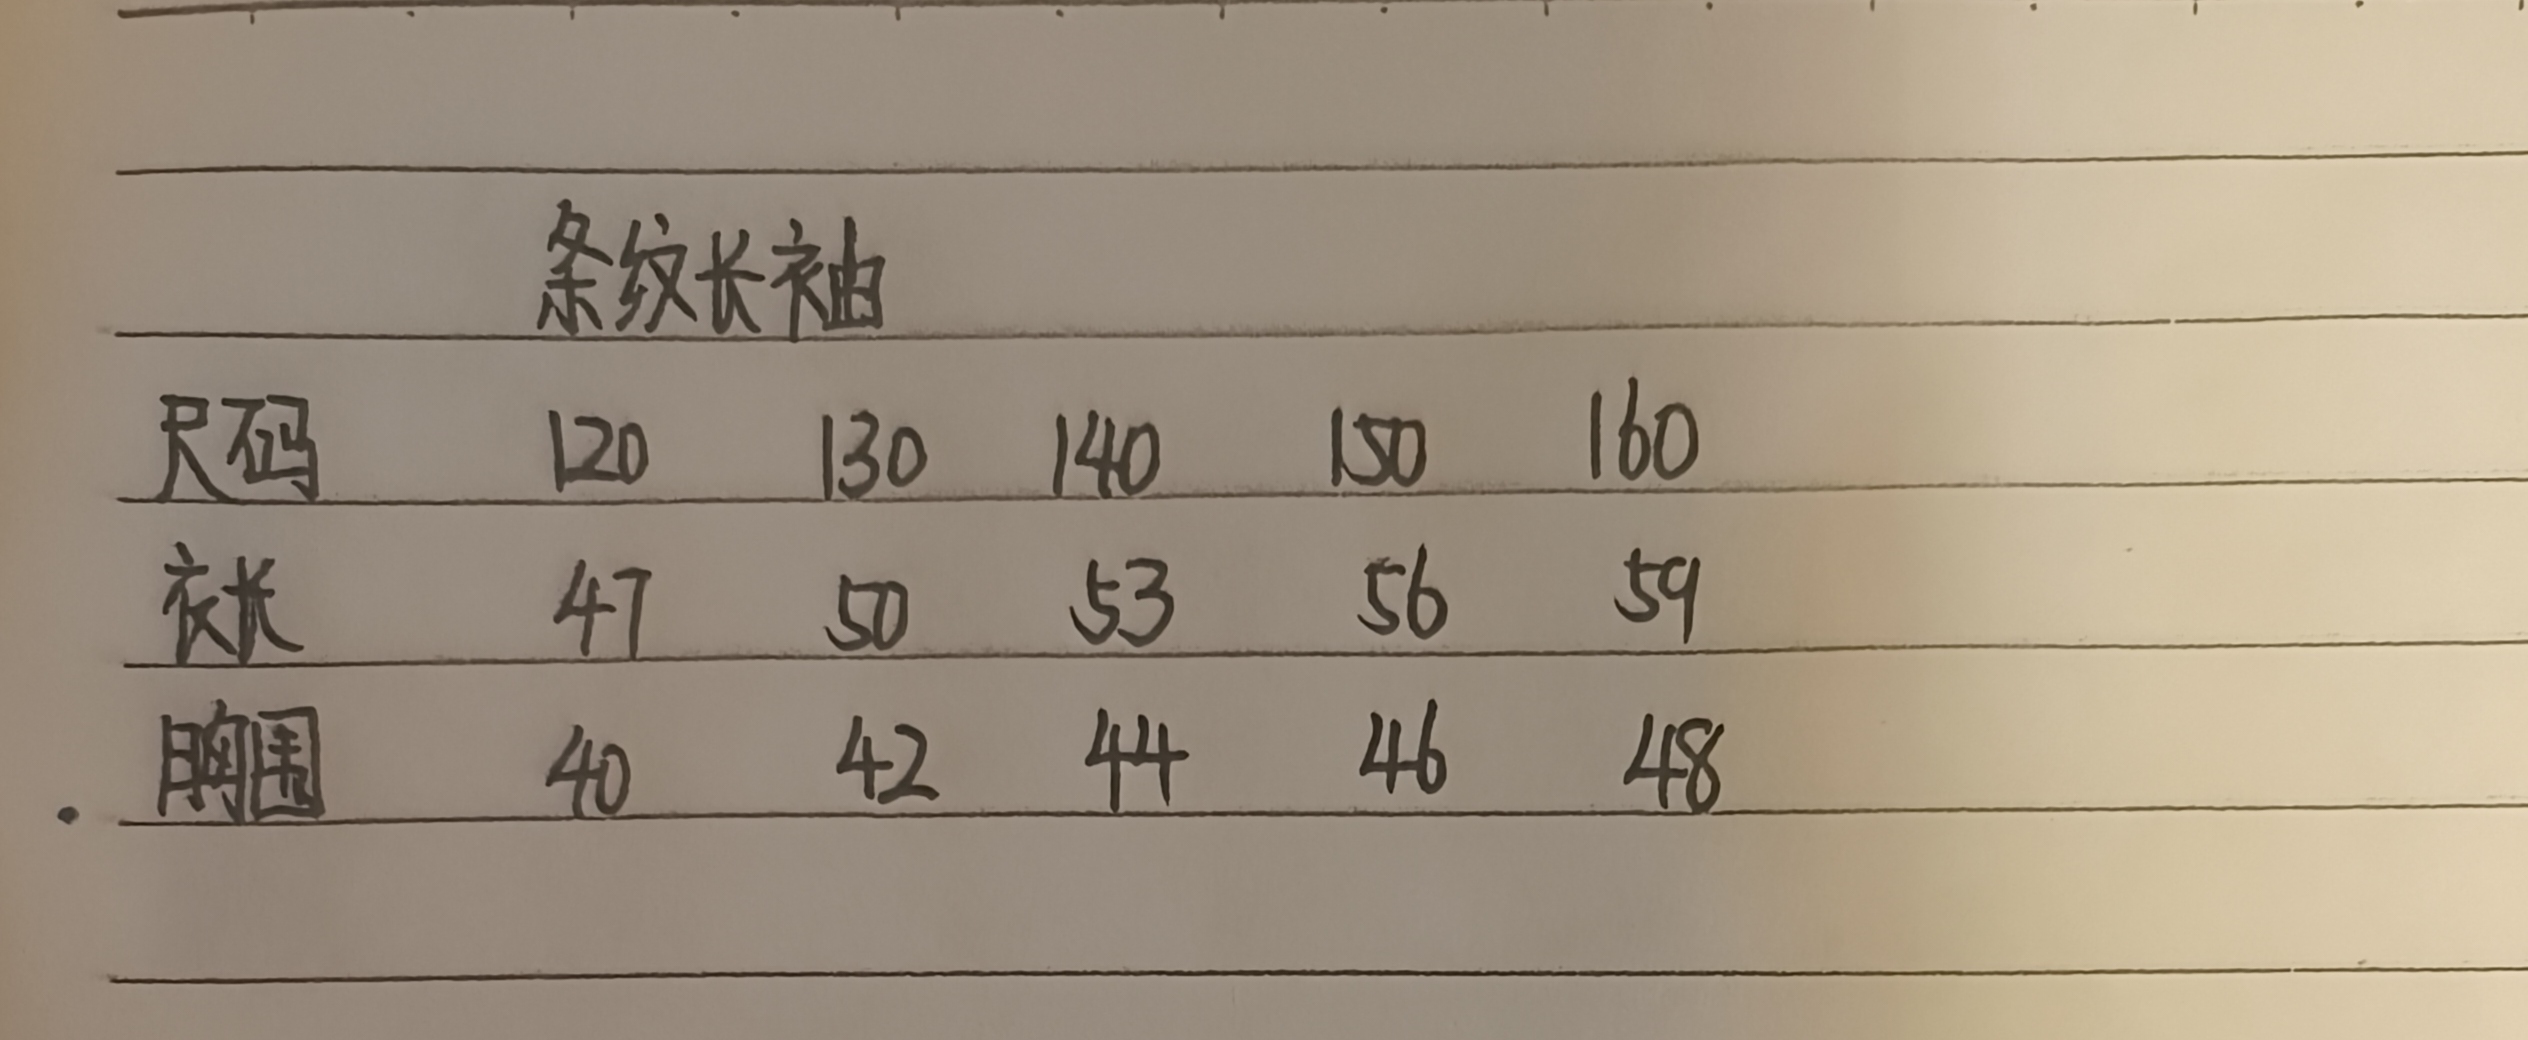 条纹长袖
尺码 120 130 140 150 160
衣长 47 50 53 56 59
胸围 40 42 44 46 48